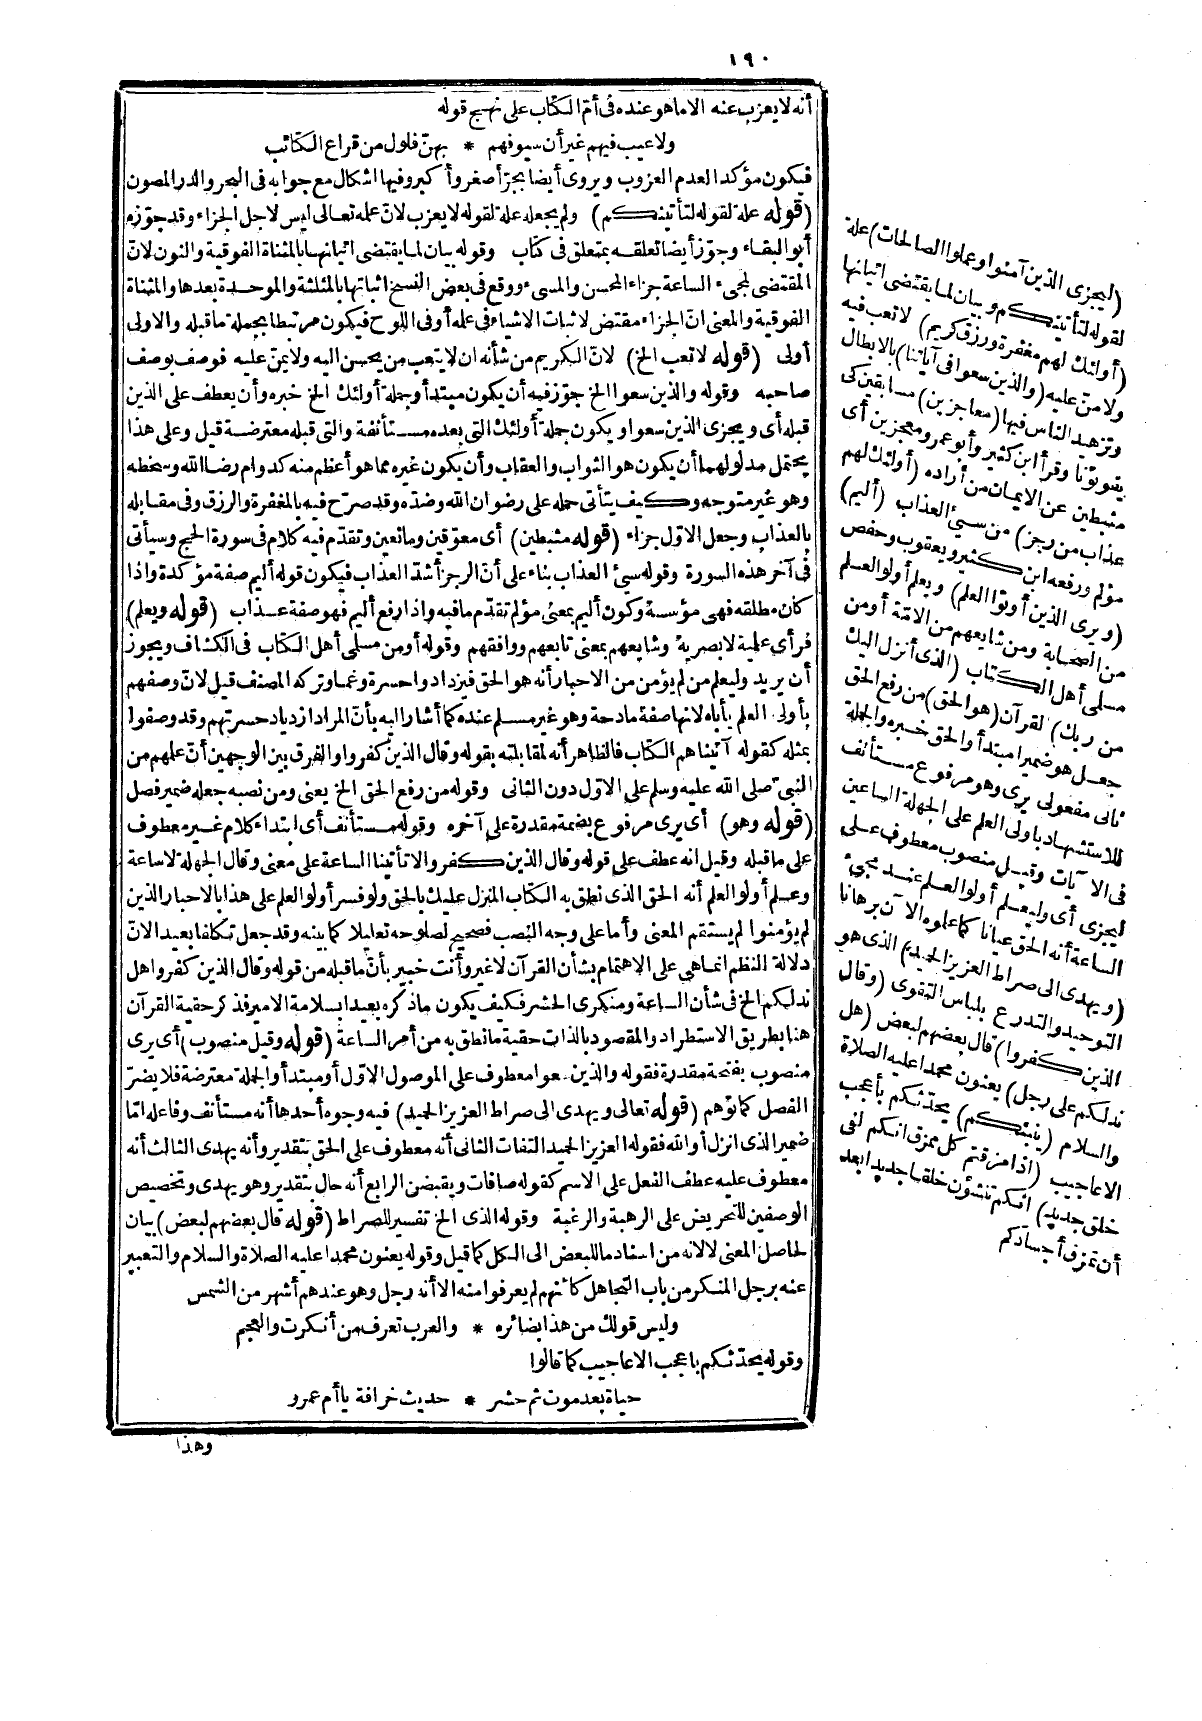 ١٩٠
أنه لا يعزب عنه الا ما هو عنده فى أم الكتاب على نهج قوله
ولا عيب فيهم غير أن سيوفهم * بهنّ فلول من قراع الكتائب
فيكون مؤكدا لعدم العزوب ويروى أيضا بجرّ أصغر وأكبر وفيها اشكال مع جوابه فى البحر والدر المصون
(قوله علة لقوله لتأتينكم) ولم يجعله علة لقوله لا يعزب لانّ علمه تعالى ليس لاجل الجزاء وقد جوّزه
أبو البقاء وجوّز أيضا تعلقه بمتعلق فى كتاب وقوله بيان لما يقتضى اتيانها بالمثناة الفوقية والنون لانّ
المقتضى لمجىء الساعة جزاء المحسن والمسىء ووقع فى بعض النسخ اثباتها بالمثلثة والموحدة بعدها والمثناة
الفوقية والمعنى انّ الجزاء مقتض لاثبات الاشياء فى علمه أو فى اللوح فيكون مرتبطا بجملة ما قبله والاولى
أولى (قوله لا تعب الخ) لانّ الكريم من شأنه ان لا يتعب من يحسن اليه ولا يمنّ عليه فوصف بوصف
صاحبه وقوله والذين سعوا الخ جوّز فيه أن يكون مبتدأ وجملة أولئك الخ خبره وأن يعطف على الذين
قبله أى ويجزى الذين سعوا ويكون جملة أولئك التى بعده مستأنفة والتى قبله معترضة قيل وعلى هذا
يحتمل مدلولهما أن يكون هو الثواب والعقاب وأن يكون غيره مما هو أعظم منه كدوام رضا الله وسخطه
وهو غير متوجه وكيف يتأتى حمله على رضوان الله وضده وقد صرّح فيه بالمغفرة والرزق وفى مقابله
بالعذاب وجعل الاوّل جزاء (قوله مثبطين) أى معوّقين ومانعين وتقدّم فيه كلام فى سورة الحج وسيأتى
فى آخر هذه السورة وقوله سيئ العذاب بناء على أنّ الرجز أشدّ العذاب فيكون قوله أليم صفة مؤكدة واذا
كان مطلقه فهى مؤسسة وكون أليم بمعنى مؤلم تقدّم ما فيه واذا رفع أليم فهو صفة عذاب (قوله ويعلم)
فرأى علمية لا بصرية وشايعهم بمعنى تابعهم ووافقهم وقوله أو من مسلمى أهل الكتاب فى الكشاف ويجوز
أن يريد وليعلم من لم يؤمن من الاحبار أنه هو الحق فيزدادوا حسرة وغما وتركه المصنف قيل لانّ وصفهم
بأولى العلم يأباه لانها صفة مادحة وهو غير مسلم عنده كما أشار اليه بأنّ المراد ازدياد حسرتهم وقد وصفوا
بمثله كقوله آتيناهم الكتاب فالظاهر أنه لمقابلته بقوله وقال الذين كفروا والفرق بين الوجهين أنّ علمهم من
النبىّ صلى الله عليه وسلم على الاوّل دون الثانى وقوله من رفع الحق الخ يعنى ومن نصبه جعله ضمير فصل
(قوله وهو) أى يرى مرفوع بضمة مقدرة على آخره وقوله مستأنف أى ابتداء كلام غير معطوف
على ما قبله وقيل انه عطف على قوله وقال الذين كفروا لا تأتينا الساعة على معنى وقال الجهلة لا ساعة
وعلم أولو العلم أنه الحق الذى نطق به الكتاب المنزل عليك بالحق ولو فسر أولو العلم على هذا بالاحبار الذين
لم يؤمنوا لم يستقم المعنى وأما على وجه النصب فصحيح لصلوحه تعليلا كما بينه وقد جعل تكلفا بعيد الانّ
دلالة النظم انما هى على الاهتمام بشأن القرآن لا غير وأنت خبير بأنّ ما قبله من قوله وقال الذين كفروا هل
ندلكم الخ فى شأن الساعة ومنكرى الحشر فكيف يكون ما ذكره بعيدا بسلامة الامير فذكر حقية القرآن
هنا بطريق الاستطراد والمقصود بالذات حقية ما نطق به من أمر الساعة (قوله وقيل منصوب) أى يرى
منصوب بفتحة مقدرة فقوله والذين سعوا معطوف على الموصول الاوّل أو مبتدأ والجملة معترضة فلا يضرّ
الفصل كما توهم (قوله تعالى ويهدى الى صراط العزيز الحميد) فيه وجوه أحدها أنه مستأنف وفاعله امّا
ضمير الذى انزل أو الله فقوله العزيز الحميد التفات الثانى أنه معطوف على الحق بتقدير وأنه يهدى الثالث أنه
معطوف عليه عطف الفعل على الاسم كقوله صافات ويقبضن الرابع أنه حال بتقدير وهو يهدى وتخصيص
الوصفين للتحريض على الرهبة والرغبة وقوله الذى الخ تفسير للصراط (قوله قال بعضهم لبعض) بيان
لحاصل المعنى لا لانه من اسناد ما للبعض الى الكل كما قيل وقوله يعنون محمدا عليه الصلاة والسلام والتعبير
عنه برجل المنكر من باب التجاهل كأنهم لم يعرفوا منه الا أنه رجل وهو عندهم أشهر من الشمس
وليس قولك من هذا بضائره * والعرب تعرف من أنكرت والعجم
وقوله يحدّثكم بأعجب الاعاجيب كما قالوا
حياة بعد موت ثم حشر * حديث خرافة يا أم عمرو
وهذا
(ليجزى الذين آمنوا وعملوا الصالحات) علة
لقوله لتأتينكم وبيان لما يقتضى اتيانها
(أولئك لهم مغفرة ورزق كريم) لا تعب فيه
ولا منّ عليه (والذين سعوا فى آياتنا) بالابطال
وتزهيد الناس فيها (معاجزين) مسابقين كى
يفوتونا وقرأ ابن كثير وأبو عمرو معجزين أى
مثبطين عن الايمان من أراده (أولئك لهم
عذاب من رجز) من سيئ العذاب (أليم)
مؤلم ورفعه ابن كثير ويعقوب وحفص
(ويرى الذين أوتوا العلم) ويعلم أولو العلم
من الصحابة ومن شايعهم من الامّة أو من
مسلمى أهل الكتاب (الذى أنزل اليك
من ربك) القرآن (هو الحق) من رفع الحق
جعل هو ضميرا مبتدأ والحق خبره والجملة
ثانى مفعولى يرى وهو مرفوع مستأنف
للاستشهاد بأولى العلم على الجهلة الساعين
فى الآيات وقيل منصوب معطوف على
ليجزى أى وليعلم أولو العلم عند مجىء
الساعة أنه الحق عيانا كما علموه الآن برهانا
(ويهدى الى صراط العزيز الحميد) الذى هو
التوحيد والتدرع بلباس التقوى (وقال
الذين كفروا) قال بعضهم لبعض (هل
ندلكم على رجل) يعنون محمدا عليه الصلاة
والسلام (ينبئكم) يحدّثكم بأعجب
الاعاجيب (اذا مزقتم كل ممزق انكم لفى
خلق جديد) انكم تنشؤن خلقا جديدا بعد
أن تمزق أجسادكم